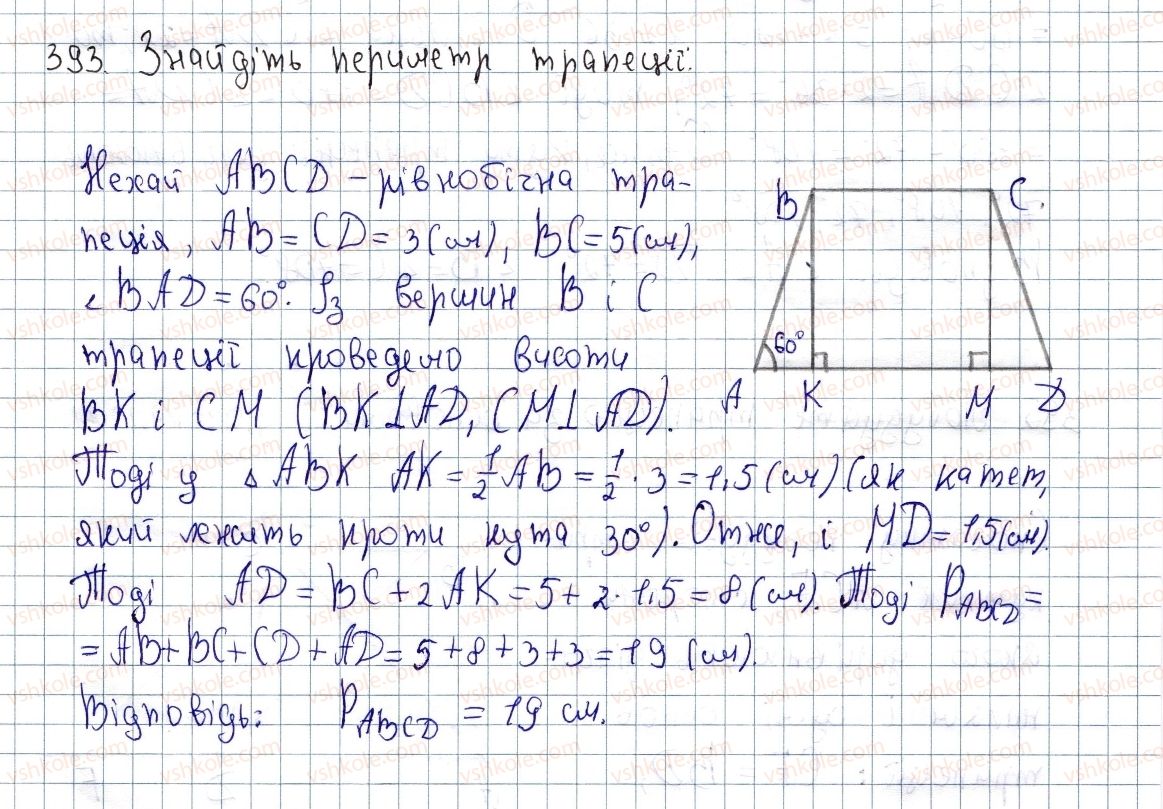 393. Знайдіть периметр трапеції:
Нехай ABCD – рівнобічна тра-
пеція, AB = CD = 3 (см), BC = 5 (см),
∠BAD = 60°. Із вершин B і C
трапеції проведемо висоти
BK і CM (BK⊥AD, CM⊥AD).
Тоді у △ABK AK = 1/2 AB = 1/2 · 3 = 1,5 (см) (як катет,
який лежить проти кута 30°). Отже, і MD = 1,5 (см).
Тоді AD = BC + 2AK = 5 + 2 · 1,5 = 8 (см). Тоді P_ABCD =
= AB + BC + CD + AD = 5 + 8 + 3 + 3 = 19 (см).
Відповідь: P_ABCD = 19 см.
B C
60°
A K M D